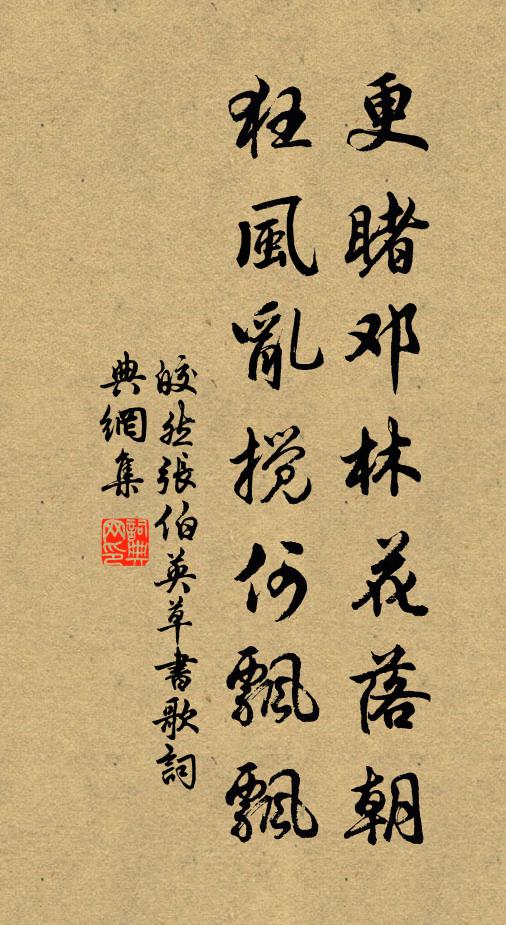 更睹邓林花落朝
狂風亂搅何飄飄
皎然張伯英草書歌詞
典網集
詞典網印